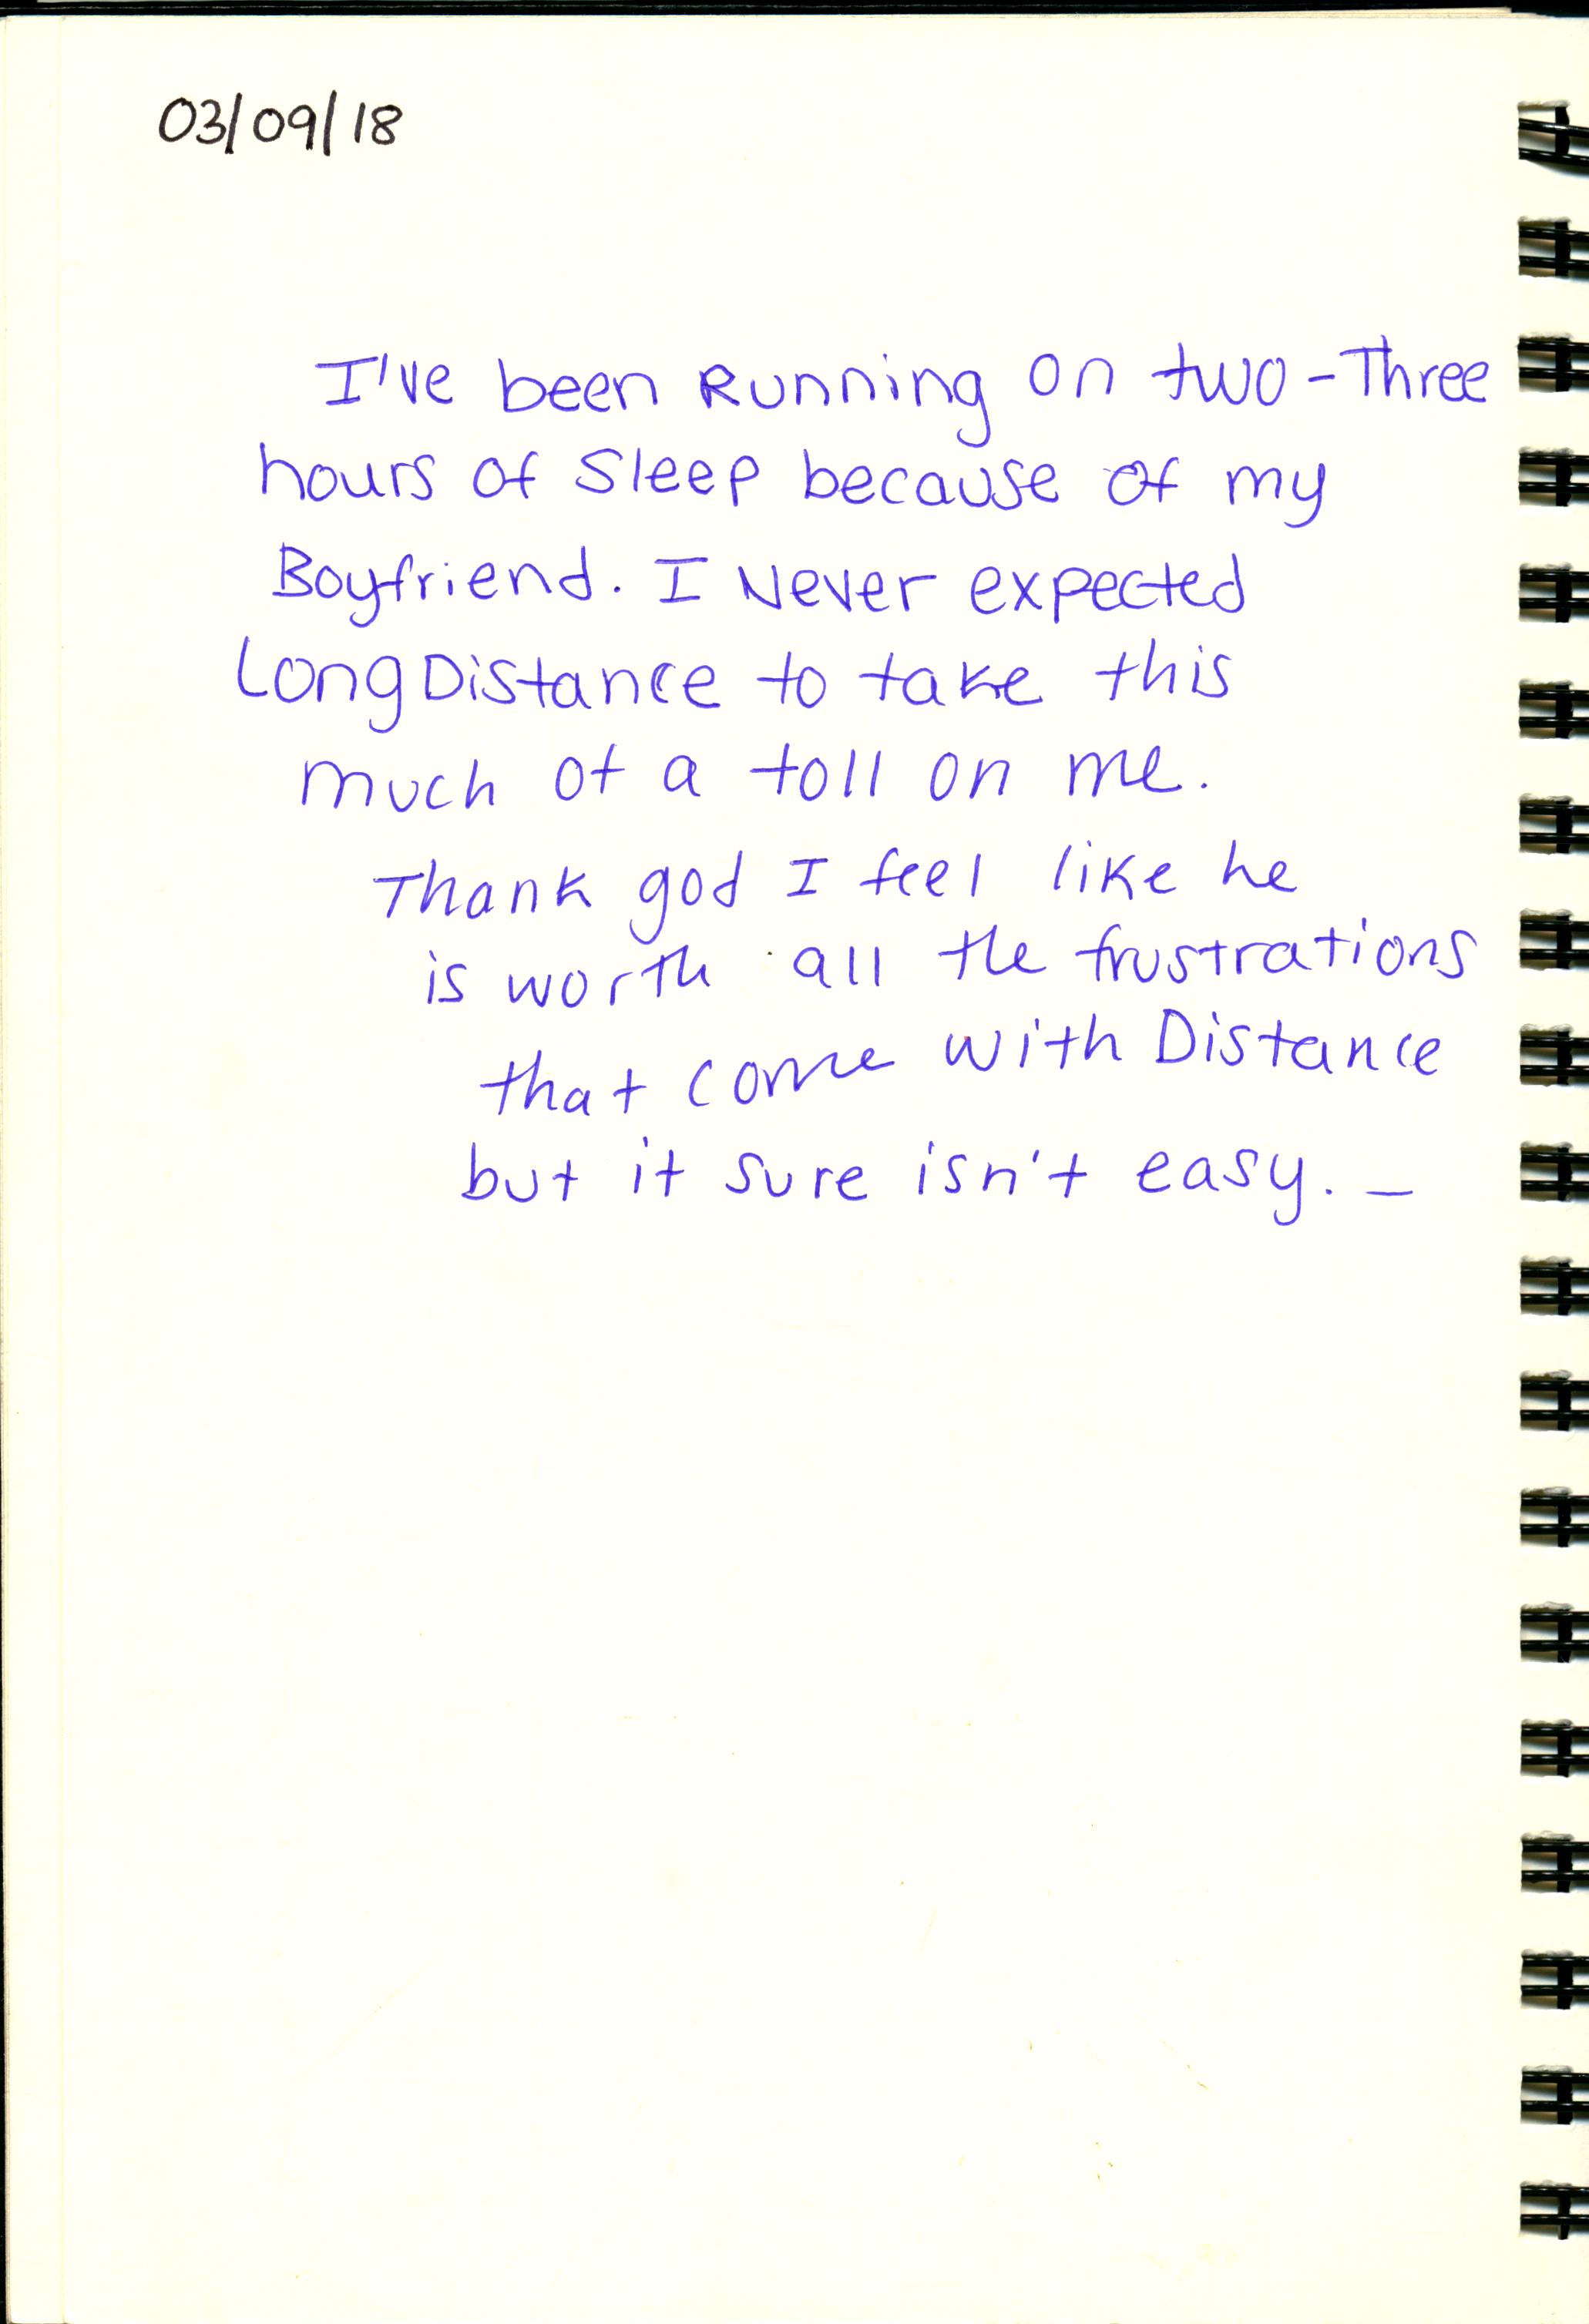 03/09/18
I've been Running on two-Three
hours of Sleep because of my
Boyfriend. I Never expected
Long Distance to take this
much of a toll on me.
Thank god I feel like he
is worth all the frustrations
that come with Distance
but it sure isn't easy. _